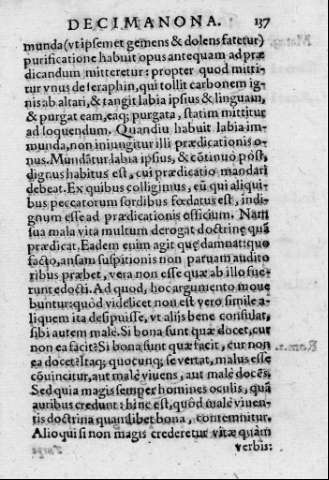 DECIMANONA. 137
munda (vt ipsemet gemens & dolens fatetur)
purificatione habuit opus antequam ad præ
dicandum mitteretur: propter quod mitti-
tur vnus de Seraphin, qui tollit carbonem ig-
nis ab altari, & tangit labia ipsius & linguam,
& purgat eam, eaq; purgata, statim mittitur
ad loquendum. Quandiu habuit labia im-
munda, non iniungitur illi prædicationis o-
nus. Mundãtur labia ipsius, & cõtinuo post,
dignus habitus est, cui prædicatio mandari
debeat. Ex quibus colligimus, eũ qui aliqui-
bus peccatorum sordibus fœdatus est, indi-
gnum esse ad prædicationis officium. Nam
sua mala vita multum derogat doctrinę quã
prædicat. Eadem enim agit quę damnat: quo
facto, ansam suspitionis non paruam audito
ribus præbet, vera non esse quæ ab illo fue-
runt edocti. Ad quod, hoc argumento moue
buntur: quòd videlicet non est vero simile a-
liquem ita desipuisse, vt alijs bene consulat,
sibi autem malè. Si bona sunt quæ docet, cur
non ea facit? Si bona sunt quæ facit, cur non
ea docet? Itaq; quocunq; se vertat, malus esse
cõuincitur, aut malè viuens, aut malè docẽs.
Sed quia magis semper homines oculis, quã
auribus credunt: hinc est, quòd malè viuen-
tis doctrina quamlibet bona, contemnitur.
Alioqui si non magis crederetur vitæ quàm
verbis: